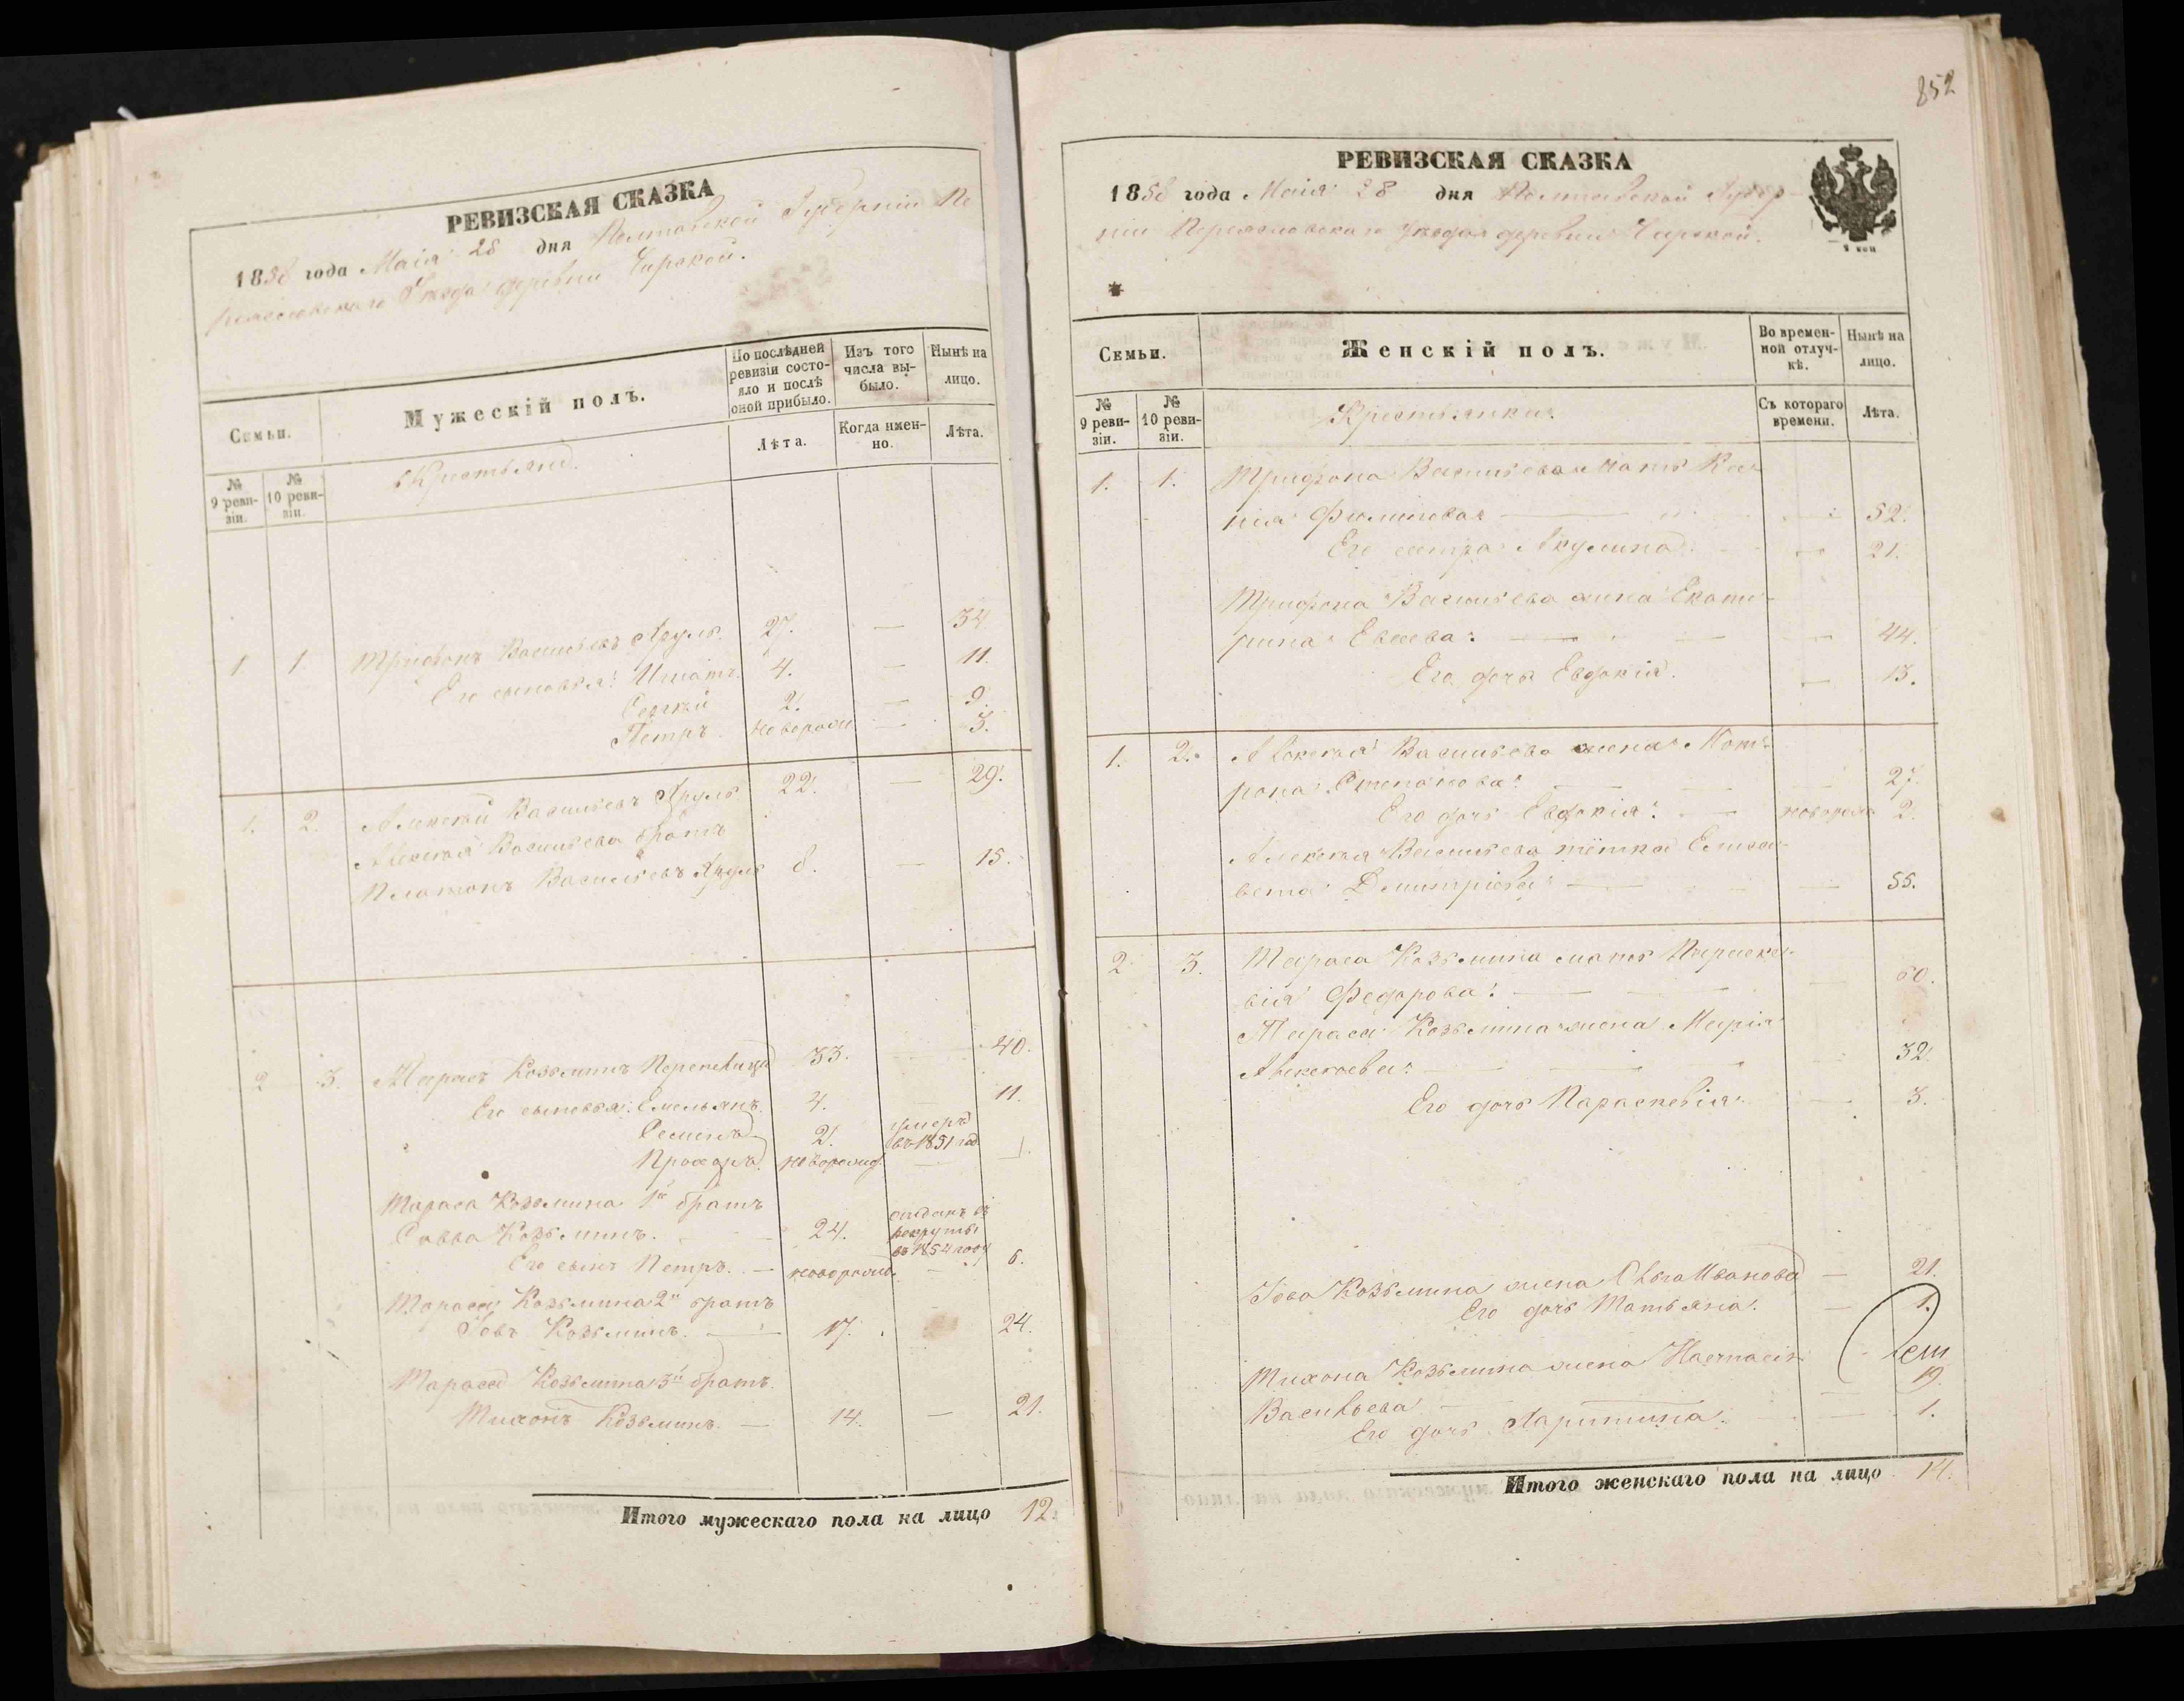 РЕВИЗСКАЯ СКАЗКА
1858 года Маія 28 дня Полтавской Губерніи Пе
реяславскаго Уѣзда деревни
Семьи.
Мужескій полъ.
По послѣдней ревизіи состояло и послѣ оной прибыло.
Изъ того числа выбыло.
Нынѣ на лицо.
№ 9 ревизіи.
№ 10 ревизіи.
Крестьяне.
Лѣта.
Когда именно.
Лѣта.
1 1 Трифонъ Васильевъ 27. — 34
Его сыновья: Игнатъ. 4. — 11.
Сергѣй 2. — 9.
Петръ. новорожд. — 3.
1. 2. Алексѣй Васильевъ 22. — 29.
Алексѣя Васильева братъ
Платонъ Васильевъ 8. — 15.
2 3. Тарасъ Козьминъ Перепелица 33. 40.
Его сыновья: Емельянъ. 4. 11.
Семенъ 2. умеръ въ 1851 год
Прохоръ. новорожд. — 1.
Тараса Козьмина 1й братъ
Савва Козьминъ. 24. отданъ въ рекруты въ 1854 году
Его сынъ Петръ. — новорожд. — 6.
Тараса Козьмина 2й братъ
Іовъ Козьминъ. — 17. 24.
Тараса Козьмина 3й братъ.
Тихонъ Козьминъ. — 14. — 21.
Итого мужескаго пола на лицо 12.
852
РЕВИЗСКАЯ СКАЗКА
1858 года Маія 28 дня Полтавской Губер-
ніи Переяславскаго уѣзда деревни
Семьи.
Женскій полъ.
Во временной отлучкѣ.
Нынѣ на лицо.
№ 9 ревизіи.
№ 10 ревизіи.
Крестьянки.
Съ котораго времени.
Лѣта.
1. 1. Трифона Васильева мать Ксе
нія Филипова — 52.
Его сестра Акулина. — 21.
Трифона Васильева жена Екате-
рина Евсеева: — 44.
Его дочь Евдокія. — 13.
1. 2. Алексѣя Васильева жена Мат-
рона Степанова: — 27.
Его дочь Евдокія: — новорожд 2.
Алексѣя Васильева тётка Елиза-
вета Дмитріева — 55.
2 3. Тараса Козьмина мать Параске-
вія Федорова: — 60.
Тараса Козьмина жена Марія
Алексѣева: — 32.
Его дочь Параскевія. — 3.
Іова Козьмина жена Ольга Иванова — 21.
Его дочь Татьяна. — 1.
Тихона Козьмина жена Настасія
Васильева — 19.
Его дочь Харитина. — 1.
Итого женскаго пола на лицо 14.